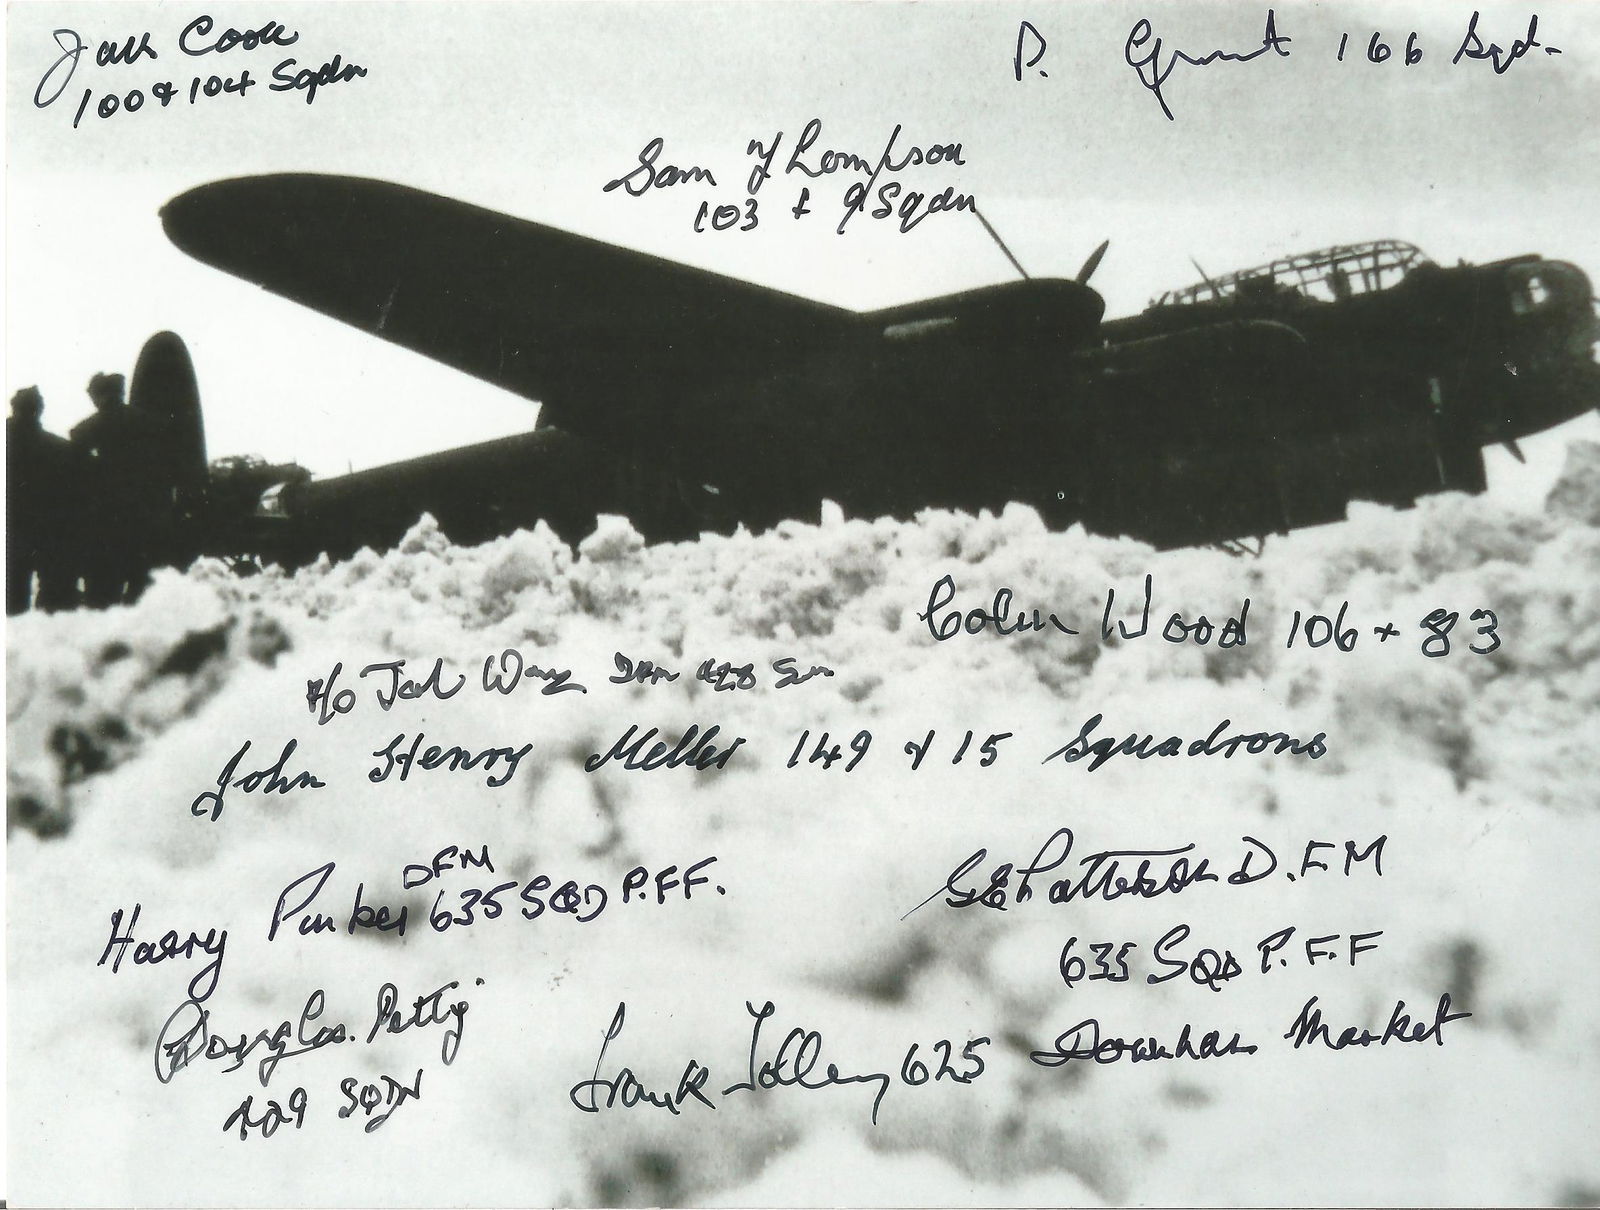 Jack Cook
100 & 104 Sqdn
P. Grant 166 Sqd.
Sam Thompson
103 + 9 Sqdn
Colin Wood 106 + 83
F/O Jack
John Henry Meller 149 & 15 Squadrons
DFM
Harry Parker 635 SQD P.F.F.
G E Patterson D.F.M
635 SQD P.F.F
Downham Market
Douglas Petty
429 SQDN
Frank Tolley 625